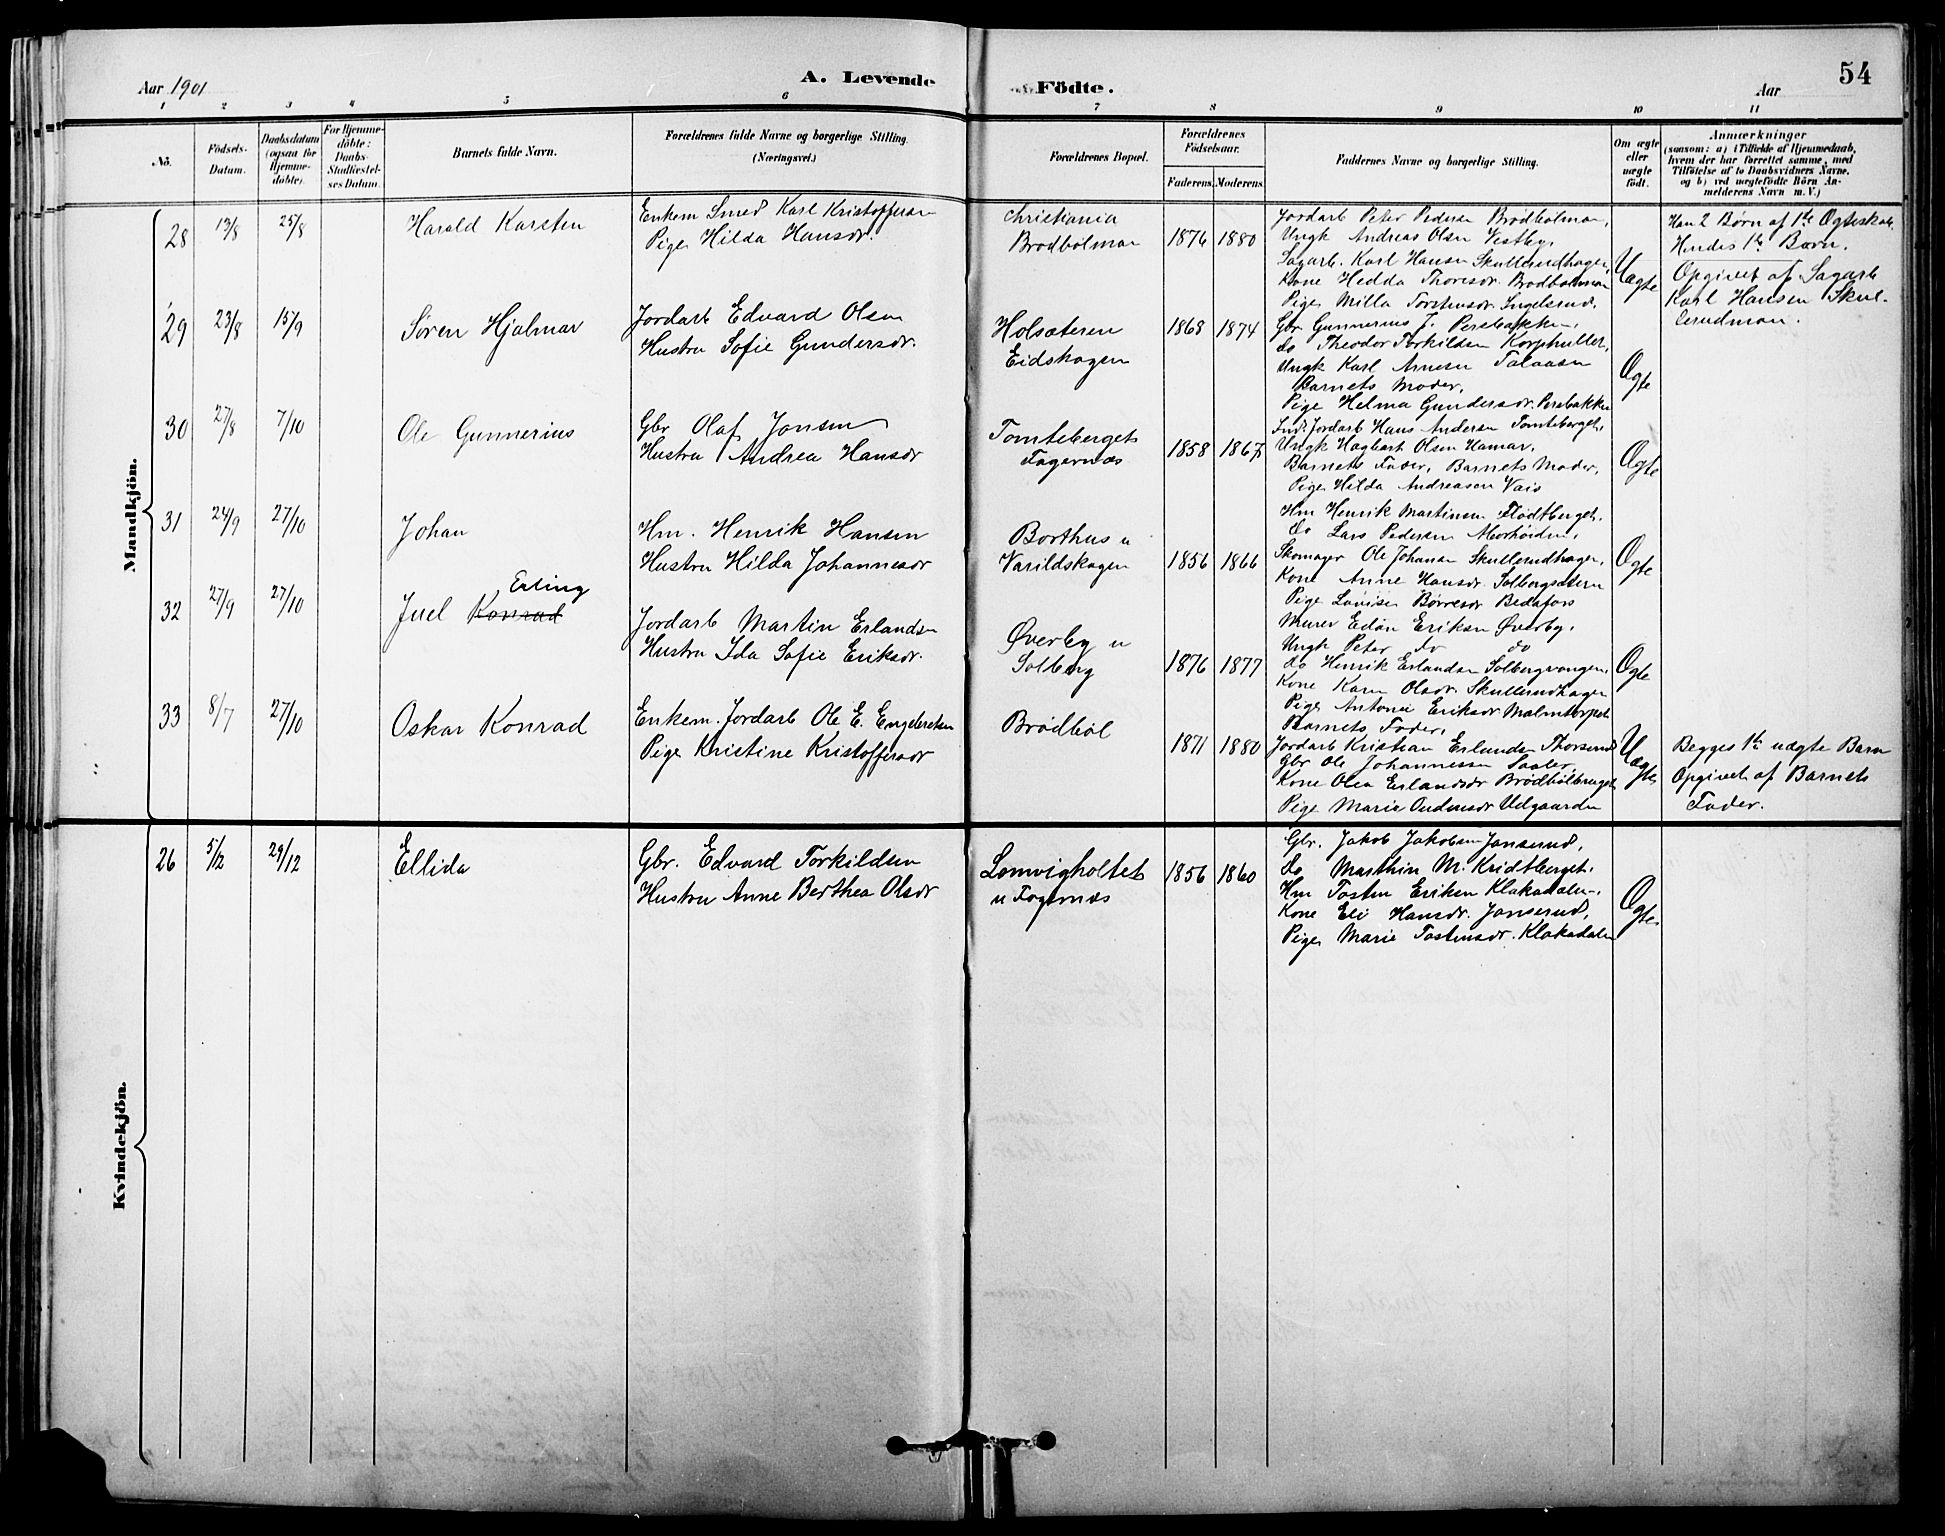 Aar 1901
A. Levende
Födte.
Aar
54
1 2 3 4 5 6 7 8 9 10 11
No.
Födsels-
Datum.
Daabsdatum
(ogsaa for
Hjemme-
döbte).
For Hjemme-
döbte:
Daabs-
Stadfæstel-
ses Datum.
Barnets fulde Navn.
Forældrenes fulde Navne og borgerlige Stilling.
(Næringsvei.)
Forældrenes Bopæl.
Forældrenes
Födselsaar.
Faderens.
Moderens.
Faddernes Navne og borgerlige Stilling.
Om ægte
eller
uægte
født.
Anmærkninger
(saasom: a) i Tilfælde af Hjemmedaab,
hvem der har forrettet samme, med
Tilföielse af to Daabsvidners Navne,
og b) ved uægtefödte Börn An-
melderens Navn m. V.)
Mandkjön.
28
13/8
25/8
Harald Karsten
Enkem Smed Karl Kristoffersen
Pige Hilda Hansdr.
Christiania
Brødbølmoen
1876
1880
Jordarb Peter Pedersen Brødbølmoen,
Ungk Andreas Olsen Vestby,
Sagarb. Karl Hansen Skullerudhagen,
Kone Hedda Thoresdr. Brødbølmoen
Pige Milla Torstensdr. Ingelsrud.
Uægte
Han 2 Børn af 1te Ægteskab,
Hendes 1te Barn.
Opgivet af Sagarb
Karl Hansen Skul-
lerudmoen.
29
23/8
15/9
Sören Hjalmar
Jordarb Edvard Olsen
Hustru Sofie Gundersdr.
Holsæteren
Eidskogen
1868
1874
Gbr. Gunnerius J. Persbakken,
do Theodor Torkildsen Korphullet,
Ungk Karl Arnesen Talaasen
Barnets Moder,
Pige Helma Gundersdr. Persbakken
Ægte
30
27/8
7/10
Ole Gunnerius
Gbr Olaf Jonsen
Hustru Andrea Hansdr
Tomteberget
Fagernæs
1858
1867
Ind. Jordarb Hans Andersen Tomteberget,
Ungk Hagbart Olsen Hamar,
Barnets Fader, Barnets Moder,
Pige Hilda Andreasen Vais
Ægte
31
24/9
27/10
Johan
Hm. Henrik Hansen
Hustru Hilda Johannesdr
Borthus u
Varildskogen
1856
1866
Hm Henrik Martinsen Flødtberget,
do Lars Pedersen Morheiden,
Skomager Ole Johansen Skullerudhagen,
Kone Anne Hansdr. Solbergsætern
Pige Lovise Børresdr Bedafors
Ægte
32
27/9
27/10
Erling
Juel Konrad
Jordarb Martin Erlandsen
Hustru Ida Sofie Eriksdr.
Øverby u
Solberg
1876
1877
Murer Edøn Eriksen Øverby,
Ungk Peter do do
do Henrik Erlandsen Solbergvangen,
Kone Karen Olsdr. Skullerudhagen
Pige Antonie Eriksdr Malmtorpet
Barnets Fader,
Ægte
33
8/7
27/10
Oskar Konrad
Enkem. Jordarb Ole E. Engebretsen
Pige Kristine Kristoffersdr
Brødbøl
1871
1880
Jordarb Kristian Erlandsen Thorsrud
Gbr Ole Johannessen Saater,
Kone Olea Erlandsdr Brødbølberget
Pige Marie Andersdr Udgaarden
Uægte
Begges 1te uægte Barn
Opgivet af Barnets
Fader.
Kvindekjön.
26
5/12
29/12
Ellida
Gbr. Edvard Torkildsen
Hustru Anne Berthea Olsdr
Lomvigholtet
u Fagernæs
1856
1860
Gbr. Jakob Jakobsen Janserud,
do Marthin M. Kridtberget,
Hm Tosten Eriksen Klakadalen,
Kone Eli Hansdr. Janserud,
Pige Marie Tostensdr. Klakadalen
Ægte